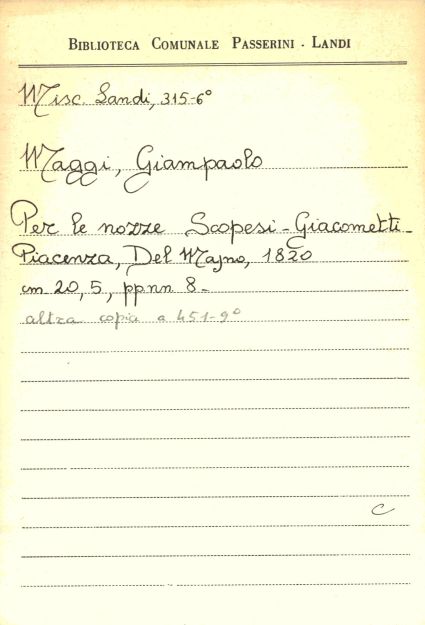 BIBLIOTECA COMUNALE PASSERINI - LANDI
Misc. Landi, 315-6°
Maggi, Giampaolo
Per le nozze Scopesi-Giacometti-
Piacenza, Del Majno, 1820
cm. 20,5, pp.nn 8-
altra copia a 451-9°
C